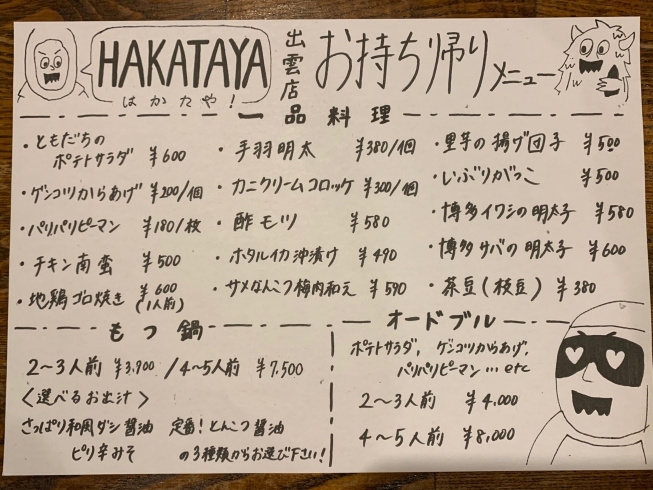 HAKATAYA
はかたや!
出雲店
お持ち帰りメニュー
一品料理
・ともだちの
ポテトサラダ ¥600
・ゲンコツからあげ ¥200/個
・パリパリピーマン ¥180/枚
・チキン南蛮 ¥500
・地鶏ゴロ焼き ¥600
(1人前)
・手羽明太 ¥380/個
・カニクリームコロッケ ¥300/個
・酢モツ ¥580
・ホタルイカ沖漬け ¥490
・サメなんこつ梅肉和え ¥590
・里芋の揚げ団子 ¥500
・いぶりがっこ ¥500
・博多イワシの明太子 ¥580
・博多サバの明太子 ¥600
・茶豆(枝豆) ¥380
もつ鍋
2〜3人前 ¥3,900 /4〜5人前 ¥7,500
〈選べるお出汁〉
さっぱり和風ダシ醤油 定番!とんこつ醤油
ピリ辛みそ の3種類からお選び下さい!
オードブル
ポテトサラダ, ゲンコツからあげ,
パリパリピーマン…etc
2〜3人前 ¥4,000
4〜5人前 ¥8,000